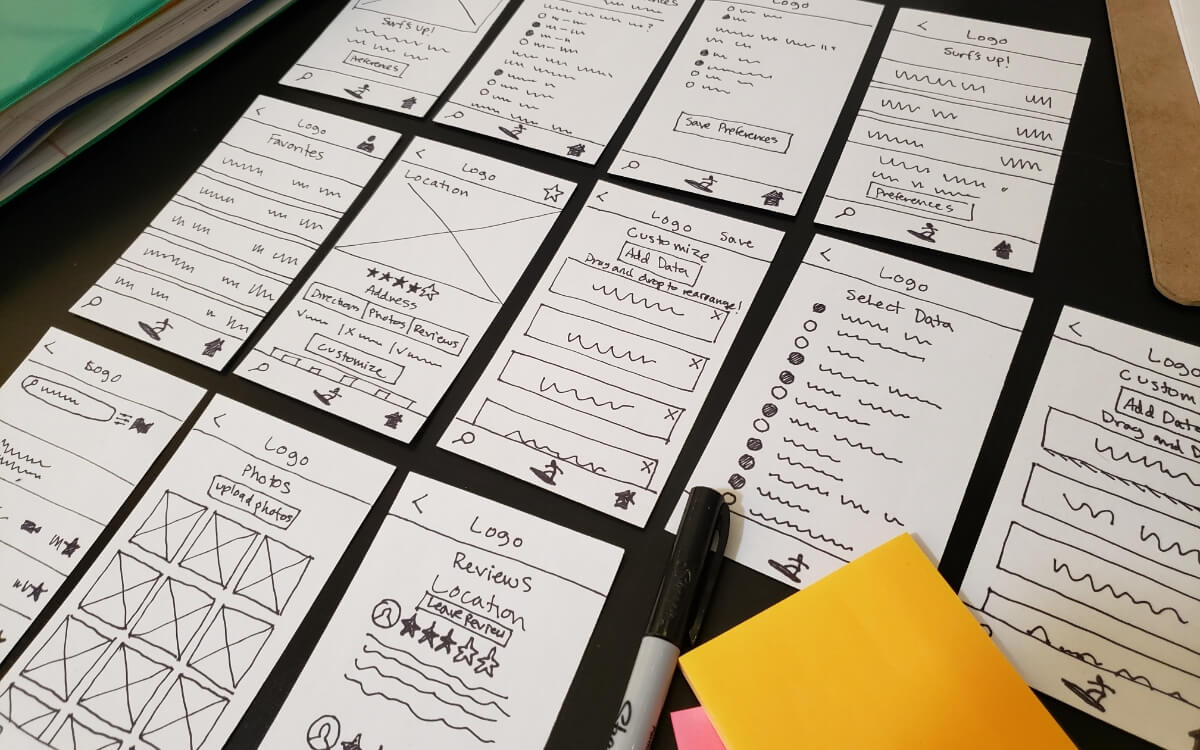 Surf's up!
Preferences
Logo
Save Preferences
Logo
Surf's up!
Preferences
Logo
Favorites
Logo
Location
Address
Directions
Photos
Reviews
Customize
Logo
Save
Customize
Add Data
Drag and drop to rearrange!
X
X
X
X
Logo
Select Data
Logo
Custom
Add Data
Drag and D
Logo
Logo
Photos
upload photos
Logo
Reviews
Location
Leave Review